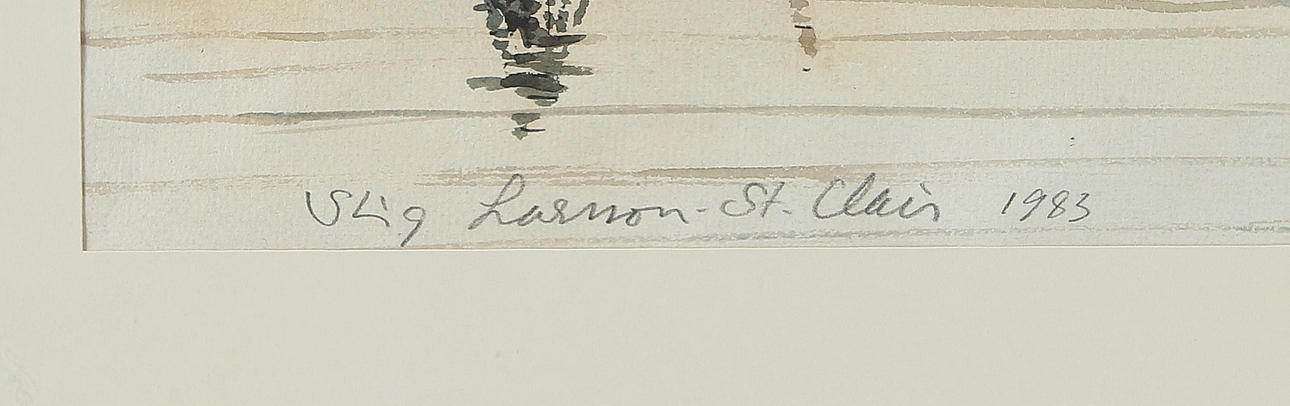 Stig Larsson-St. Clair 1983